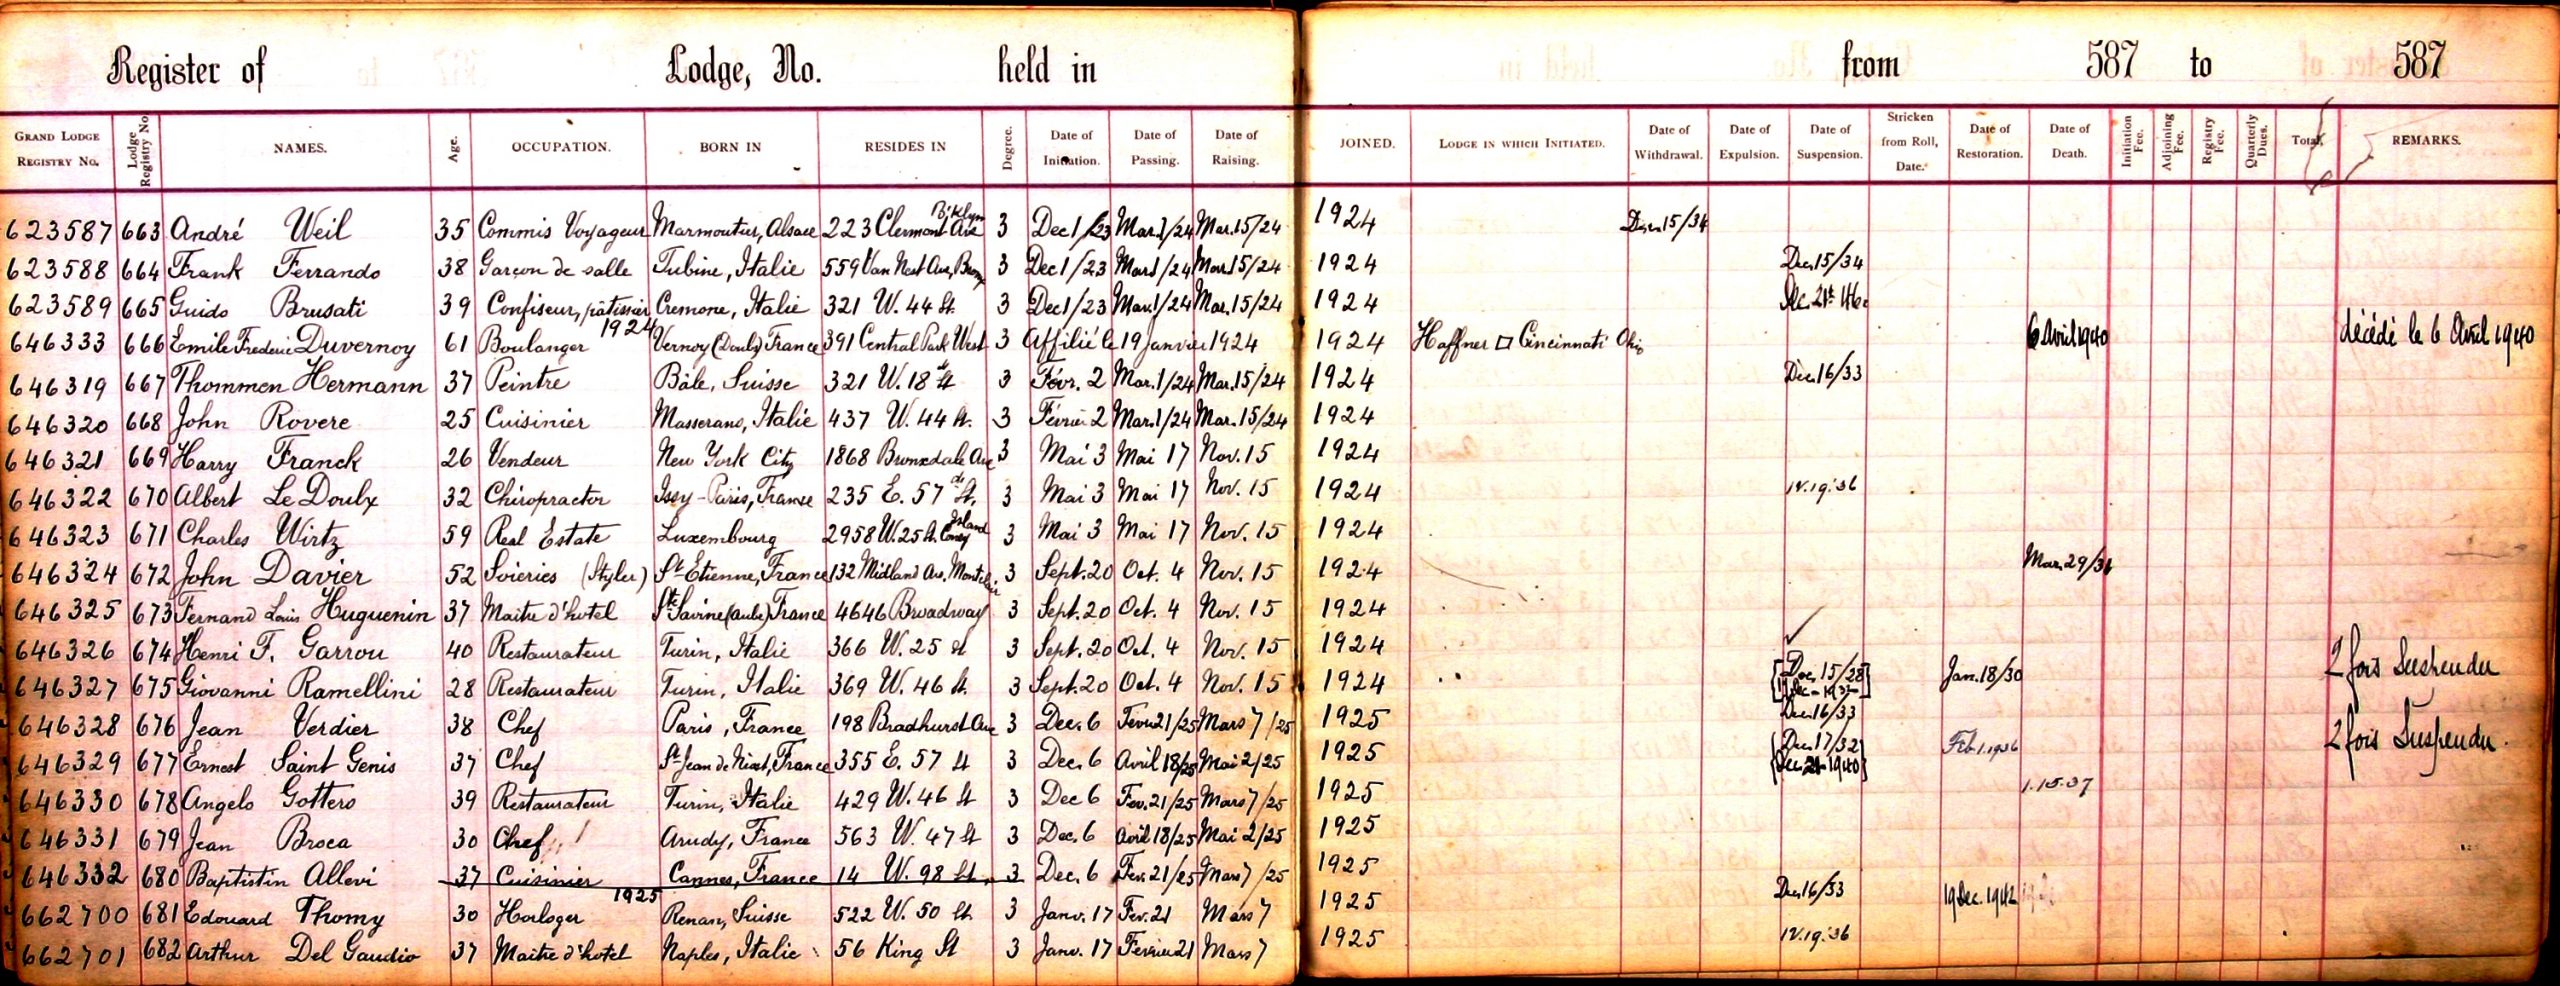 Register of Lodge, No. held in from 587 to 587
GRAND LODGE REGISTRY NO. Lodge Registry No. NAMES. Age. OCCUPATION. BORN IN RESIDES IN Degree. Date of Initiation. Date of Passing. Date of Raising. JOINED. LODGE IN WHICH INITIATED. Date of Withdrawal. Date of Expulsion. Date of Suspension. Stricken from Roll, Date. Date of Restoration. Date of Death. Initiation Fee. Adjoining Fee. Registry Fee. Quarterly Dues. Total, REMARKS.
623587 663 André Weil 35 Commis Voyageur Marmoutier, Alsace 223 Clermont Ave Bklyn 3 Dec 1/23 Mar. 1/24 Mar. 15/24 1924 Dec. 15/34
623588 664 Frank Ferrando 38 Garçon de salle Tubine, Italie 559 Van Nest Ave, Bronx 3 Dec 1/23 Mar 1/24 Mar. 15/24 1924 Dec. 15/34
623589 665 Guido Brusati 39 Confiseur, pâtissier Cremone, Italie 321 W. 44 St. 3 Dec 1/23 Mar. 1/24 Mar. 15/24 1924 Dec. 21st 46.
1924
646333 666 Emile Frederic Duvernoy 61 Boulanger Vernoy (Doubs) France 391 Central Park West 3 Affilié le 19 Janvier 1924 1924 Haffner □ Cincinnati Ohio 6 Avril 1940 décédé le 6 Avril 1940
646319 667 Thommen Hermann 37 Peintre Bâle, Suisse 321 W. 18 St 3 Févr. 2 Mar. 1/24 Mar. 15/24 1924 Dec. 16/33
646320 668 John Rovere 25 Cuisinier Masserano, Italie 437 W. 44 St. 3 Février 2 Mar. 1/24 Mar. 15/24 1924
646321 669 Harry Franck 26 Vendeur New York City 1868 Bronxdale Ave 3 Mai 3 Mai 17 Nov. 15 1924
646322 670 Albert Le Doulx 32 Chiropractor Issy-Paris, France 235 E. 57 St. 3 Mai 3 Mai 17 Nov. 15 1924 12.19.36
646323 671 Charles Wirtz 59 Real Estate Luxembourg 2958 W. 25 St. Coney Island 3 Mai 3 Mai 17 Nov. 15 1924
646324 672 John Davier 52 Soieries (Styler) St-Etienne, France 132 Midland Ave. Montclair 3 Sept. 20 Oct. 4 Nov. 15 1924 Mar. 29/31
646325 673 Fernand Louis Huguenin 37 Maitre d'hotel Ste Savine (Aube) France 4646 Broadway 3 Sept. 20 Oct. 4 Nov. 15 1924
646326 674 Henri F. Garrou 40 Restaurateur Turin, Italie 366 W. 25 St 3 Sept. 20 Oct. 4 Nov. 15 1924 ✓
646327 675 Giovanni Ramellini 28 Restaurateur Turin, Italie 369 W. 46 St. 3 Sept. 20 Oct. 4 Nov. 15 1924 [Dec. 15/28 17 Dec - 1932] Jan. 18/30 2 fois Suspendu
646328 676 Jean Verdier 38 Chef Paris, France 198 Bradhurst Ave 3 Dec. 6 Fevr 21/25 Mars 7/25 1925 Dec. 16/33
646329 677 Ernest Saint Genis 37 Chef St-Jean de Niost, France 355 E. 57 St 3 Dec. 6 Avril 18/25 Mai 2/25 1925 [Dec. 17/32 Dec. 21 1940] Feb. 1. 1936 2 fois Suspendu.
646330 678 Angelo Gottero 39 Restaurateur Turin, Italie 429 W. 46 St 3 Dec 6 Fev. 21/25 Mars 7/25 1925 1.15.37
646331 679 Jean Broca 30 Chef Arudy, France 563 W. 47 St 3 Dec. 6 Avril 18/25 Mai 2/25 1925
646332 680 Baptistin Allevi 37 Cuisinier Cannes, France 14 W. 98 St. 3 Dec. 6 Fev. 21/25 Mars 7/25 1925
1925
662700 681 Edouard Thomy 30 Horloger Renan, Suisse 522 W. 50 St. 3 Janv. 17 Fev. 21 Mars 7 1925 Dec. 16/33 19 Dec. 1942
662701 682 Arthur Del Gaudio 37 Maitre d'hotel Naples, Italie 56 King St 3 Janv. 17 Fevrier 21 Mars 7 1925 12.19.36